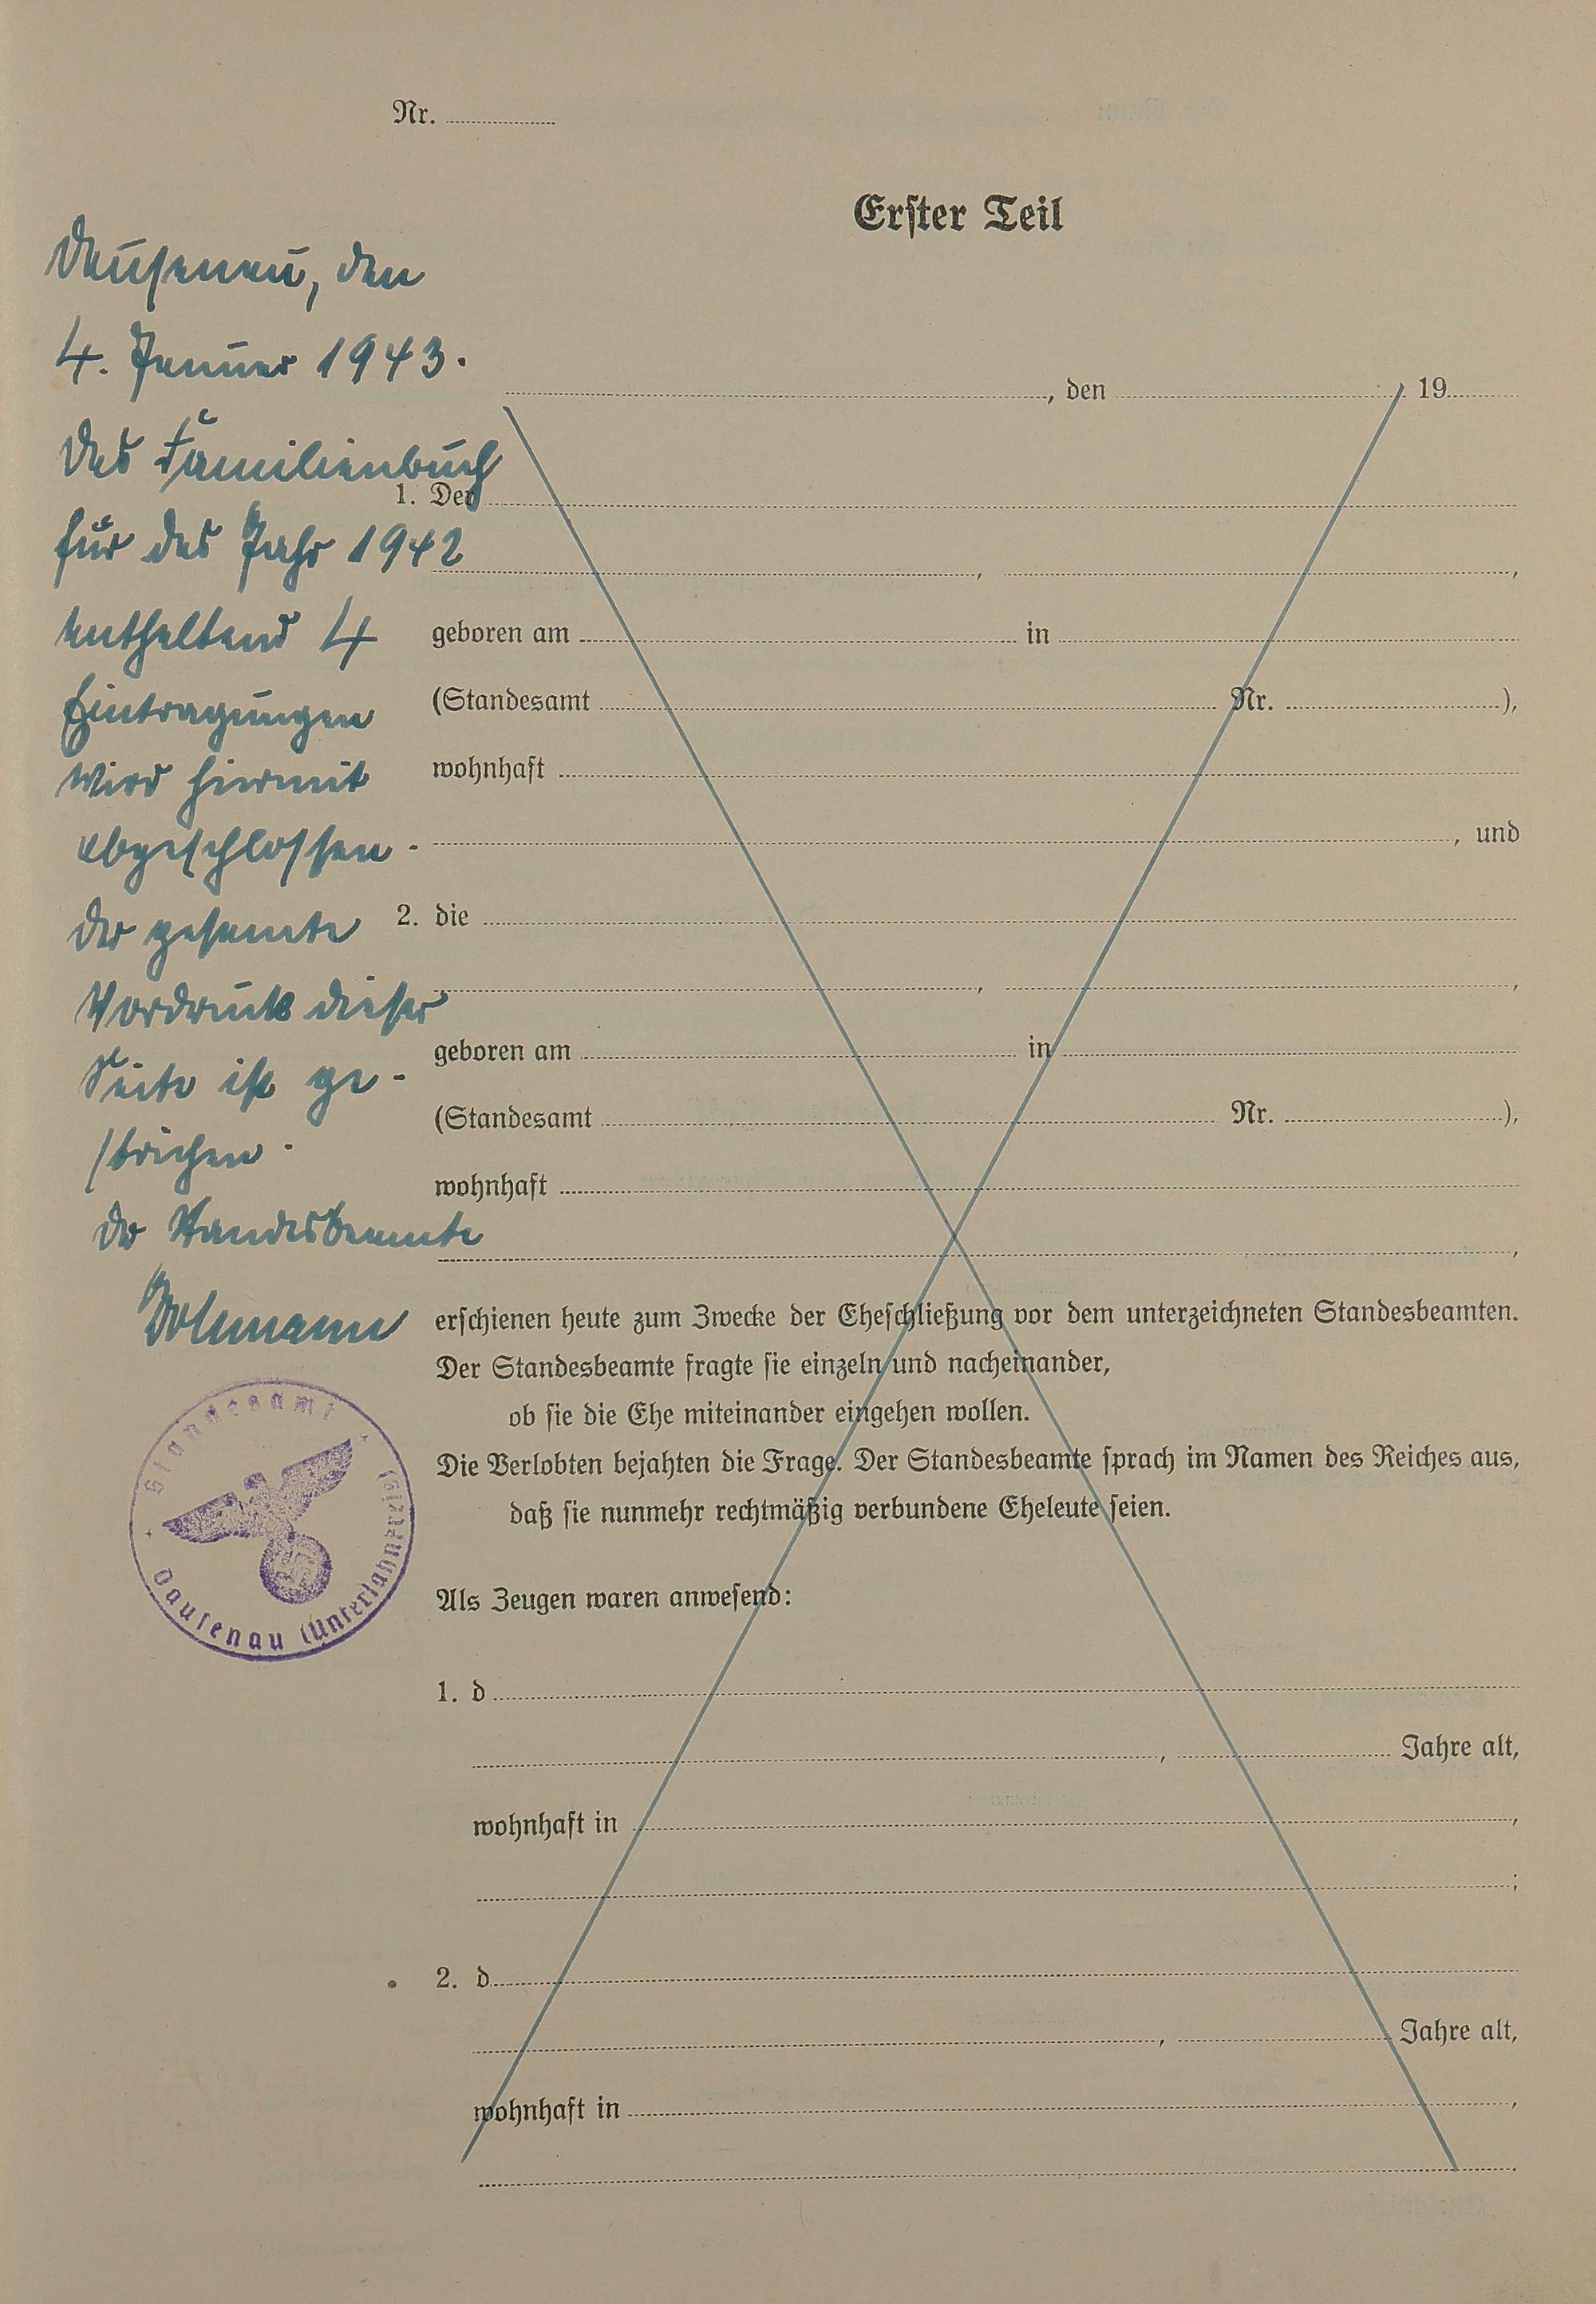 Nr.
Erster Teil
Dausenau, den
4. Januar 1943.
, den 19
Das Familienbuch
1. Der
für das Jahr 1942
, ,
enthaltend 4
geboren am in
Eintragungen
(Standesamt Nr. ),
wird hiermit
wohnhaft
abgeschlossen.
, und
Der gesamte
2. die
Vordruck dieser
, ,
Seite ist ge-
geboren am in
strichen.
(Standesamt Nr. ),
wohnhaft
Der Standesbeamte
,
erschienen heute zum Zwecke der Eheschließung vor dem unterzeichneten Standesbeamten.
Der Standesbeamte fragte sie einzeln und nacheinander,
ob sie die Ehe miteinander eingehen wollen.
Die Verlobten bejahten die Frage. Der Standesbeamte sprach im Namen des Reiches aus,
daß sie nunmehr rechtmäßig verbundene Eheleute seien.
Standesamt
Dausenau (Unterlahnkreis)
Als Zeugen waren anwesend:
1. d
, Jahre alt,
wohnhaft in ,
;
2. d
, Jahre alt,
wohnhaft in ,
.